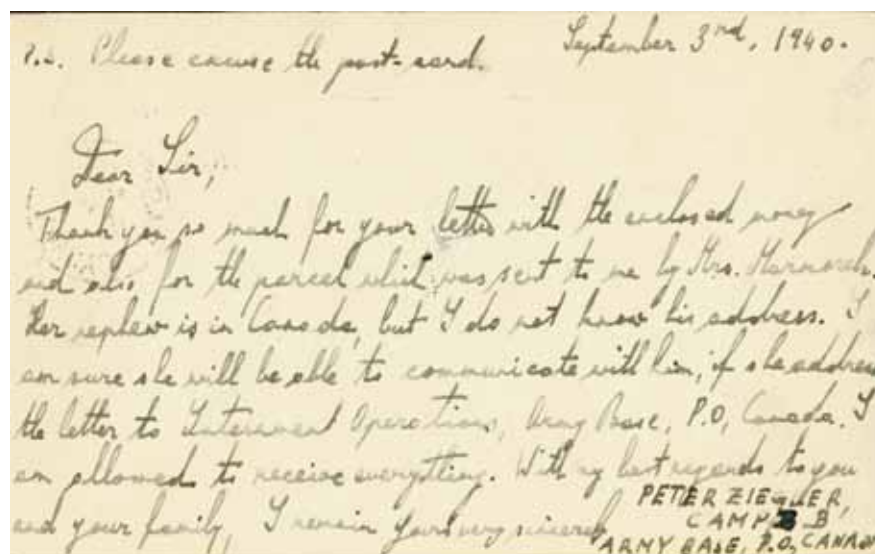 September 3nd, 1940.
P.S. Please excuse the post-card.
Dear Sir,
Thank you so much for your letter with the enclosed money
and also for the parcel which was sent to me by Mrs.
Her nephew is in Canada, but I do not know his address. I
am sure she will be able to communicate with him, if she address
the letter to Internment Operations, Army Base, P.O, Canada. I
am allowed to receive everything. With my best regards to you
and your family, I remain Yours very sincerely
PETER
CAMP B
ARMY BASE, P.O. CANADA